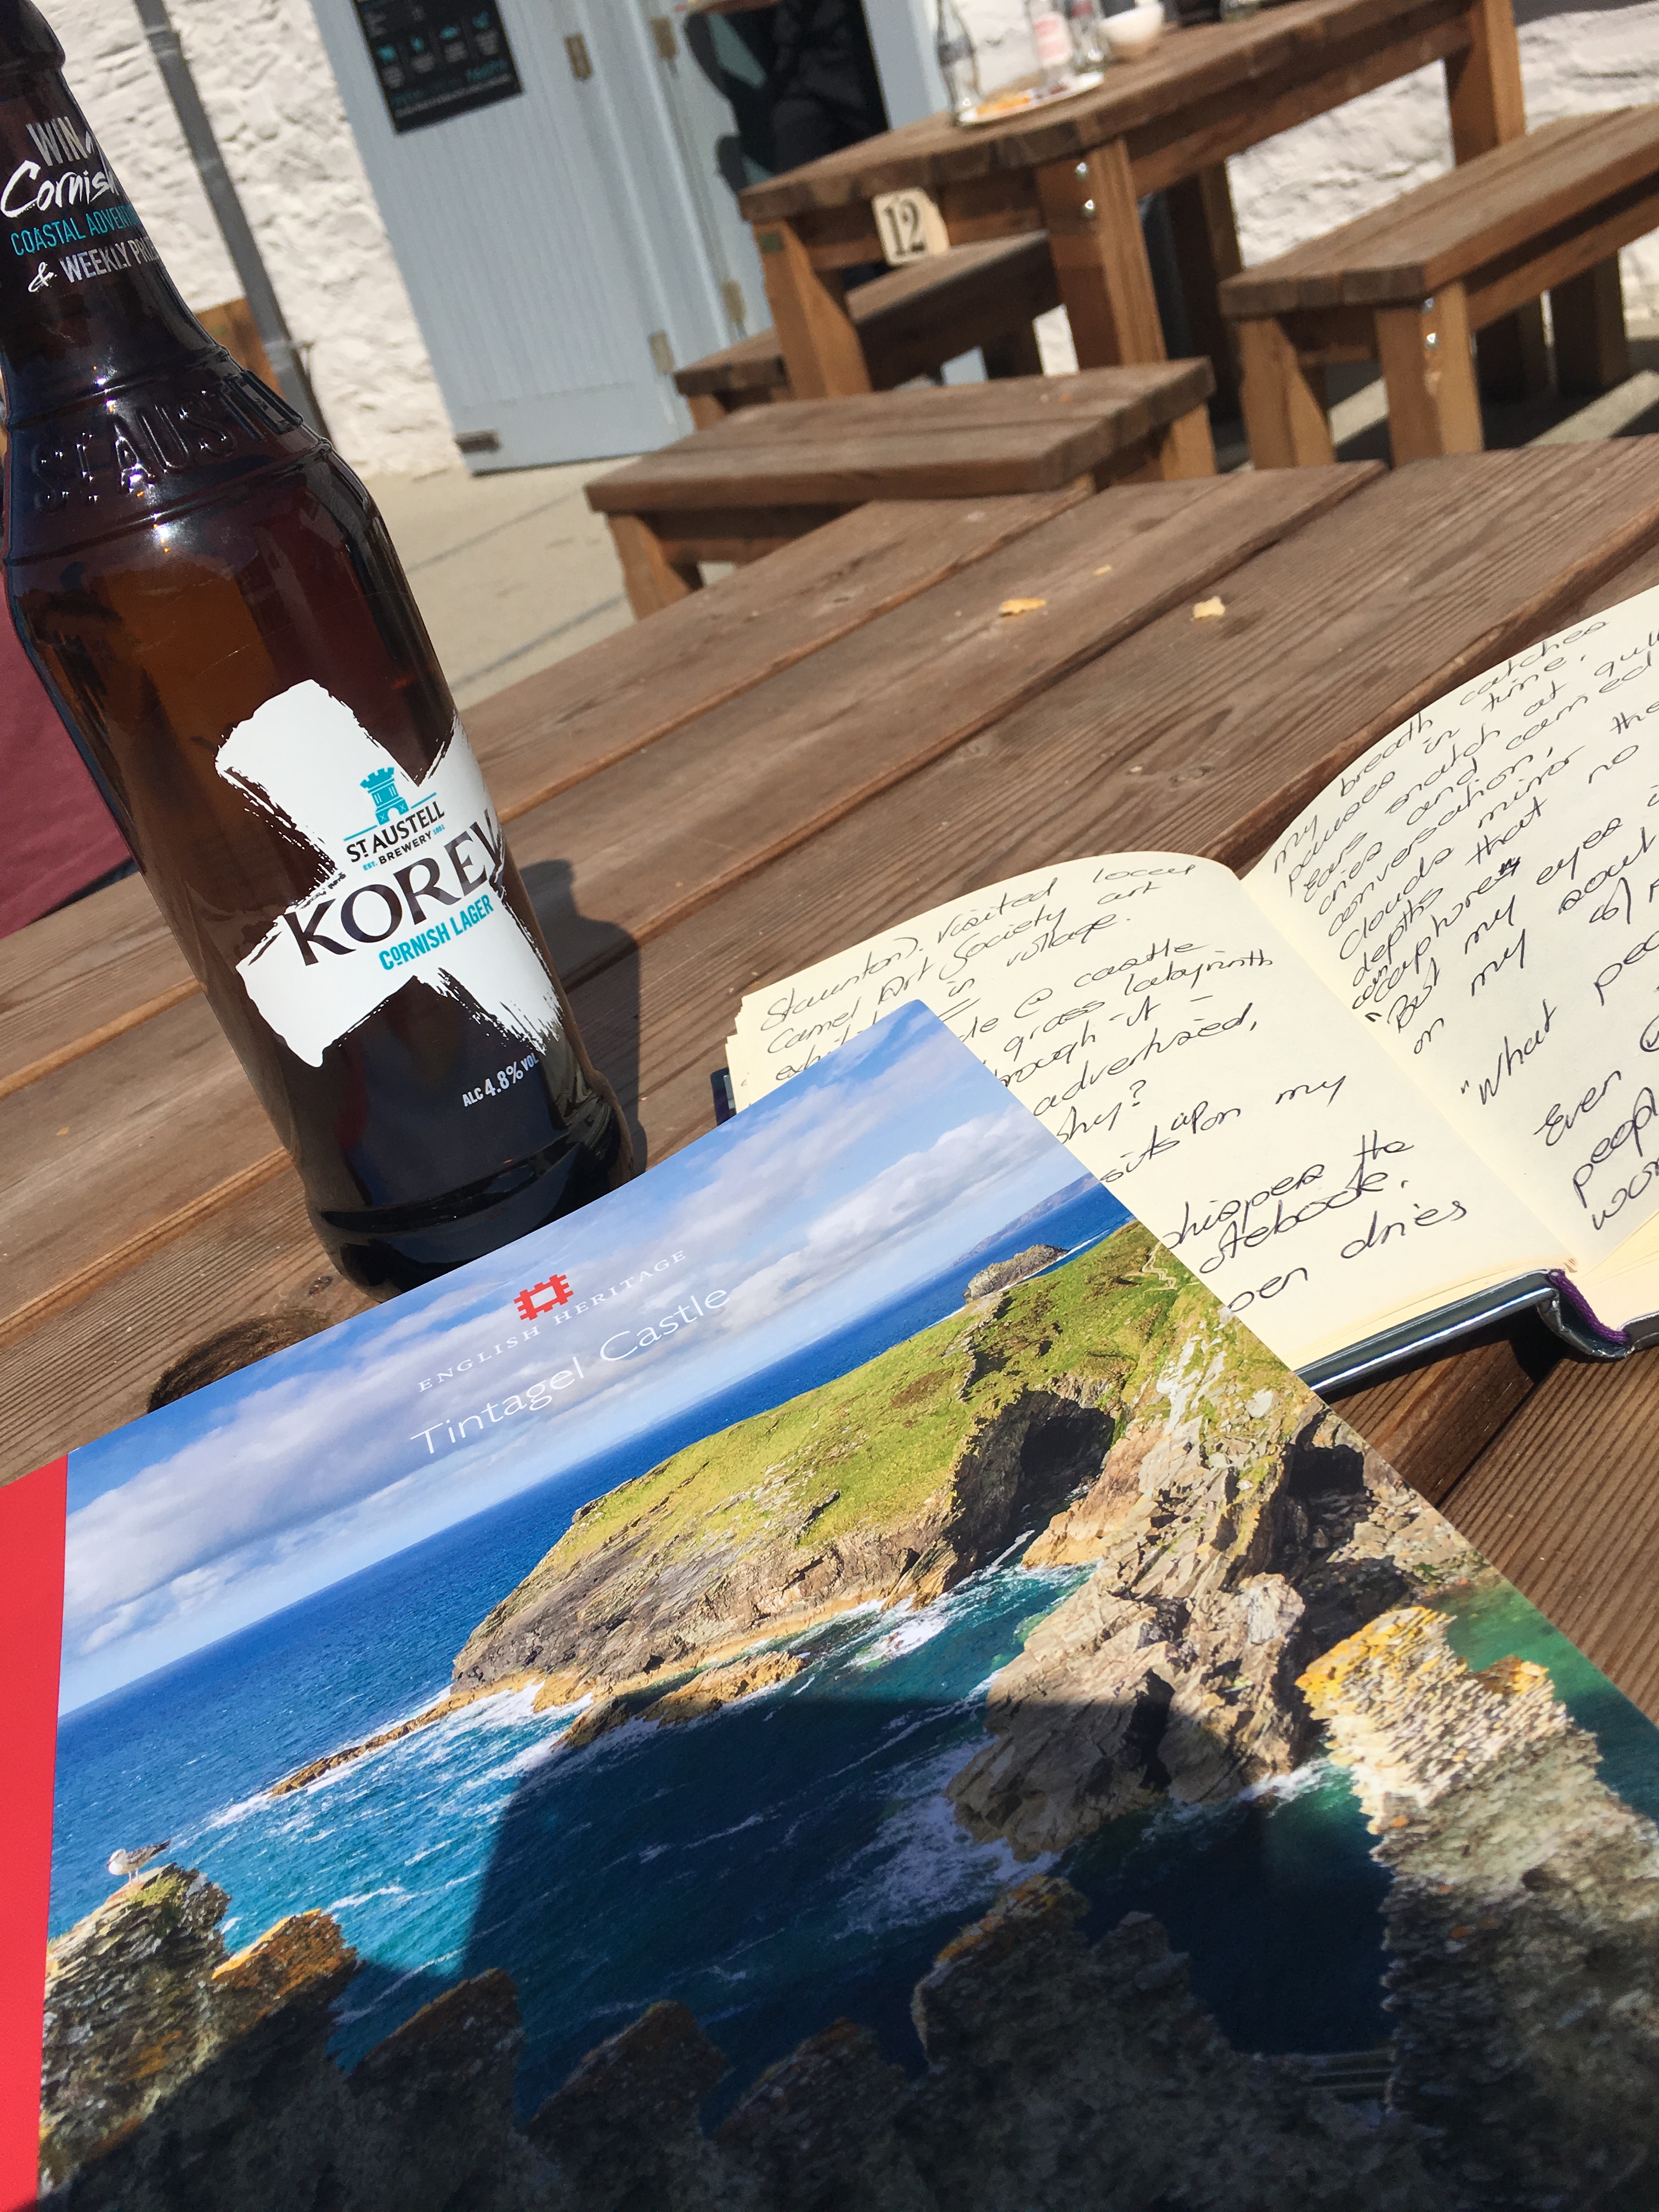 WIN a
Cornish
COASTAL ADVENT
& WEEKLY PRIZE
ST AUSTELL
ST AUSTELL
EST. BREWERY 1851
KOREV
CORNISH LAGER
ALC 4.8% VOL
12
Staunton). Visited local
Camel Art Society art
in village.
@ castle
grass labyrinth
rough it -
advertised,
shy?
sits upon my
hispers the
otebook.
pen dries
my breath catches
pauses in time.
Ears snatch at gull
cries and
conversation,
Clouds mirror the
depths that no
can capture
"But my eyes
on my
"What peo
Even
people
wor
ENGLISH HERITAGE
Tintagel Castle